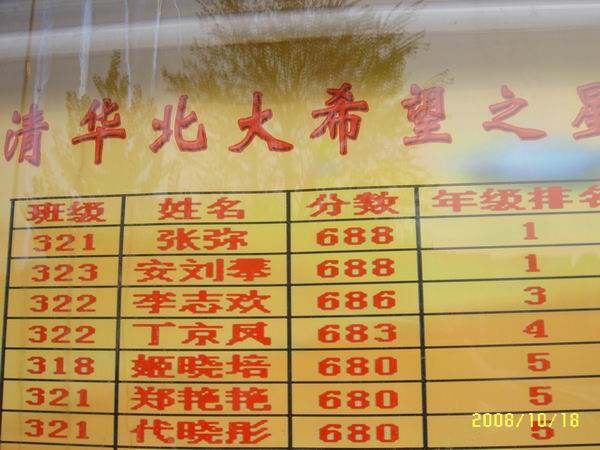 清华北大希望之星
班级 姓名 分数 年级排名
321 张弥 688 1
323 安刘季 688 1
322 李志欢 686 3
322 丁京凤 683 4
318 姬晓培 680 5
321 郑艳艳 680 5
321 代晓彤 680 5
2008/10/18